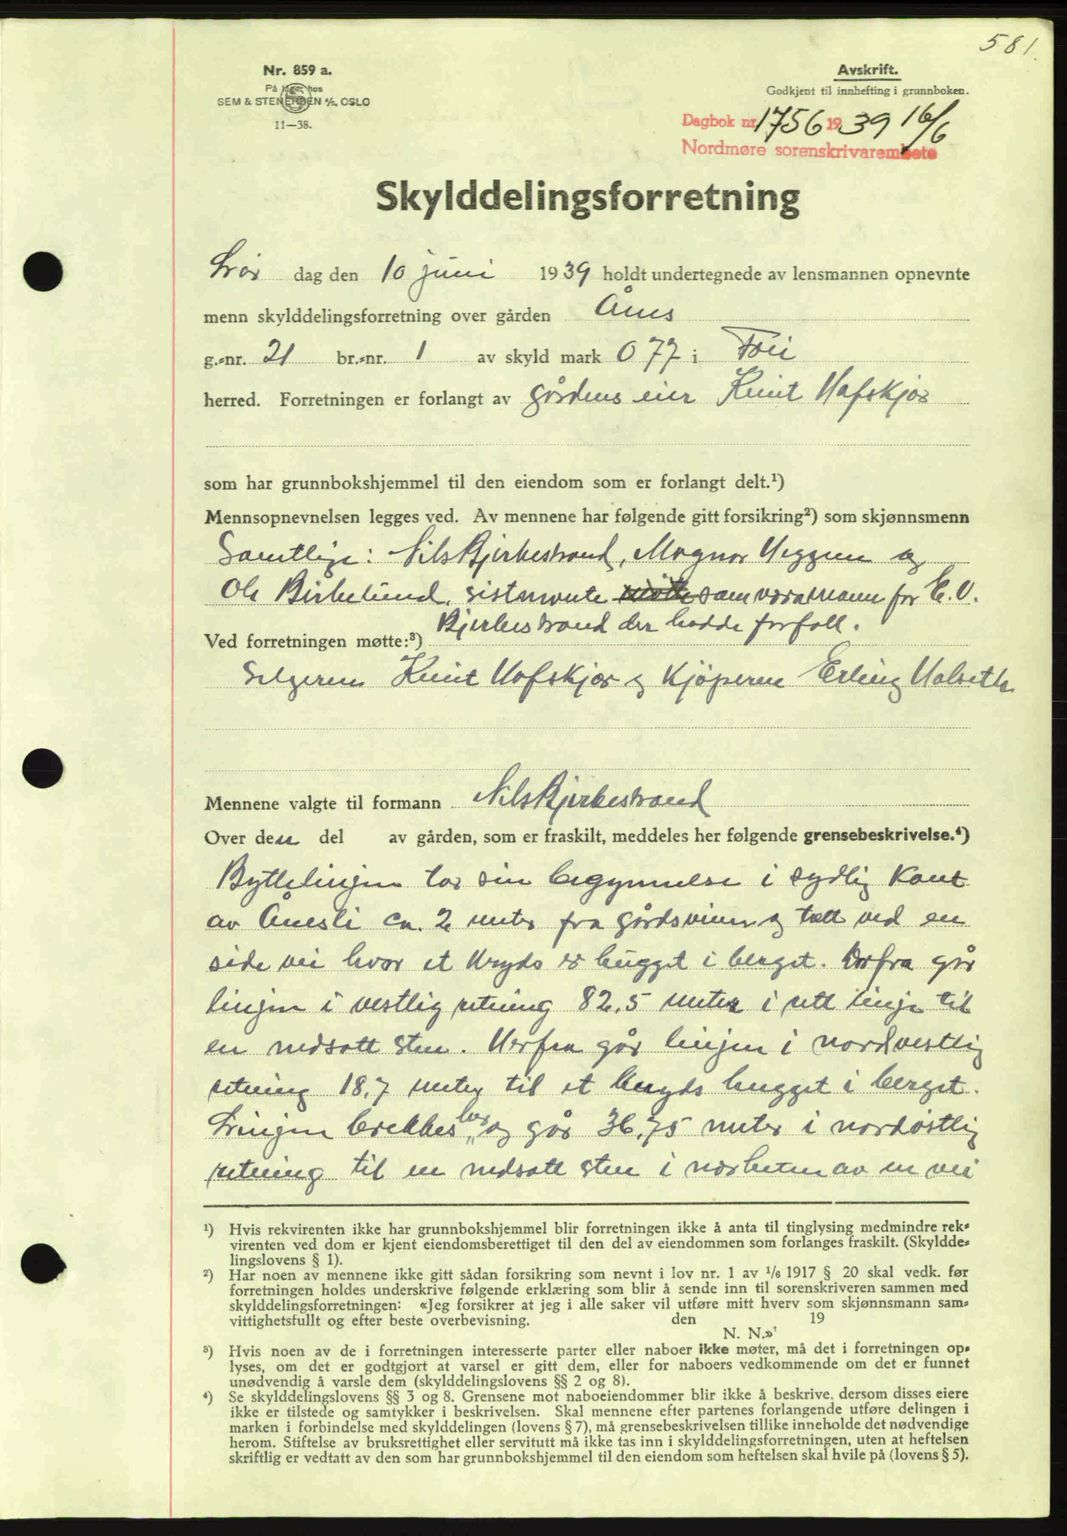 581.
Nr. 859 a.
På lager hos
SEM & STENERSEN A/S. OSLO
11—38.
Avskrift.
Godkjent til innhefting i grunnboken.
Dagbok nr. 1756 1939 16/6
Nordmøre sorenskrivarembete
Skylddelingsforretning
Lør dag den 10 juni 1939 holdt undertegnede av lensmannen opnevnte
menn skylddelingsforretning over gården Ånes
g.-nr. 21 br.-nr. 1 av skyld mark 0 77 i
herred. Forretningen er forlangt av gårdens eier Knut Hafskjær
som har grunnbokshjemmel til den eiendom som er forlangt delt.¹)
Mennsopnevnelsen legges ved. Av mennene har følgende gitt forsikring²) som skjønnsmenn
Samtlige: Nils Bjerkestrand, Magnar Heggem og
Ole Birkelund, sistnevnte som varamann for E. O.
Bjerkestrand der hadde forfall.
Ved forretningen møtte:³)
Selgeren Knut Hafskjær og Kjøperen Erling Halseth
Mennene valgte til formann Nils Bjerkestrand
Over den del av gården, som er fraskilt, meddeles her følgende grensebeskrivelse.⁴)
Byttelinjen tar sin begynnelse i sydlig kant
av Ånesli ca. 2 meter fra gårdsveien og tett ved en
side vei hvor et kryds er hugget i berget. Derfra går
linjen i vestlig retning 82,5 meter i rett linje til
en nedsatt sten. Herfra går linjen i nordvestlig
retning 18,7 meter til et kryds hugget i berget.
Linjen brekkes her og går 36,75 meter i nordøstlig
retning til en nedsatt sten i nærheten av en vei
¹) Hvis rekvirenten ikke har grunnbokshjemmel blir forretningen ikke å anta til tinglysing medmindre rek-
virenten ved dom er kjent eiendomsberettiget til den del av eiendommen som forlanges fraskilt. (Skyldde-
lingslovens § 1).
²) Har noen av mennene ikke gitt sådan forsikring som nevnt i lov nr. 1 av 1/6 1917 § 20 skal vedk. før
forretningen holdes underskrive følgende erklæring som blir å sende inn til sorenskriveren sammen med
skylddelingsforretningen: «Jeg forsikrer at jeg i alle saker vil utføre mitt hverv som skjønnsmann sam-
vittighetsfullt og efter beste overbevisning. den 19
N. N.»
³) Hvis noen av de i forretningen interesserte parter eller naboer ikke møter, må det i forretningen op-
lyses, om det er godtgjort at varsel er gitt dem, eller for naboers vedkommende om det er funnet
unødvendig å varsle dem (skylddelingslovens §§ 2 og 8).
⁴) Se skylddelingslovens §§ 3 og 8. Grensene mot naboeiendommer blir ikke å beskrive, dersom disses eiere
ikke er tilstede og samtykker i beskrivelsen. Skal mennene efter partenes forlangende utføre delingen i
marken i forbindelse med skylddelingen (lovens § 7), må grensebeskrivelsen tillike inneholde det nødvendige
herom. Stiftelse av bruksrettighet eller servitutt må ikke tas inn i skylddelingsforretningen, uten at heftelsen
skriftlig er vedtatt av den som har grunnbokshjemmel til den eiendom som heftelsen skal hvile på (lovens § 5).